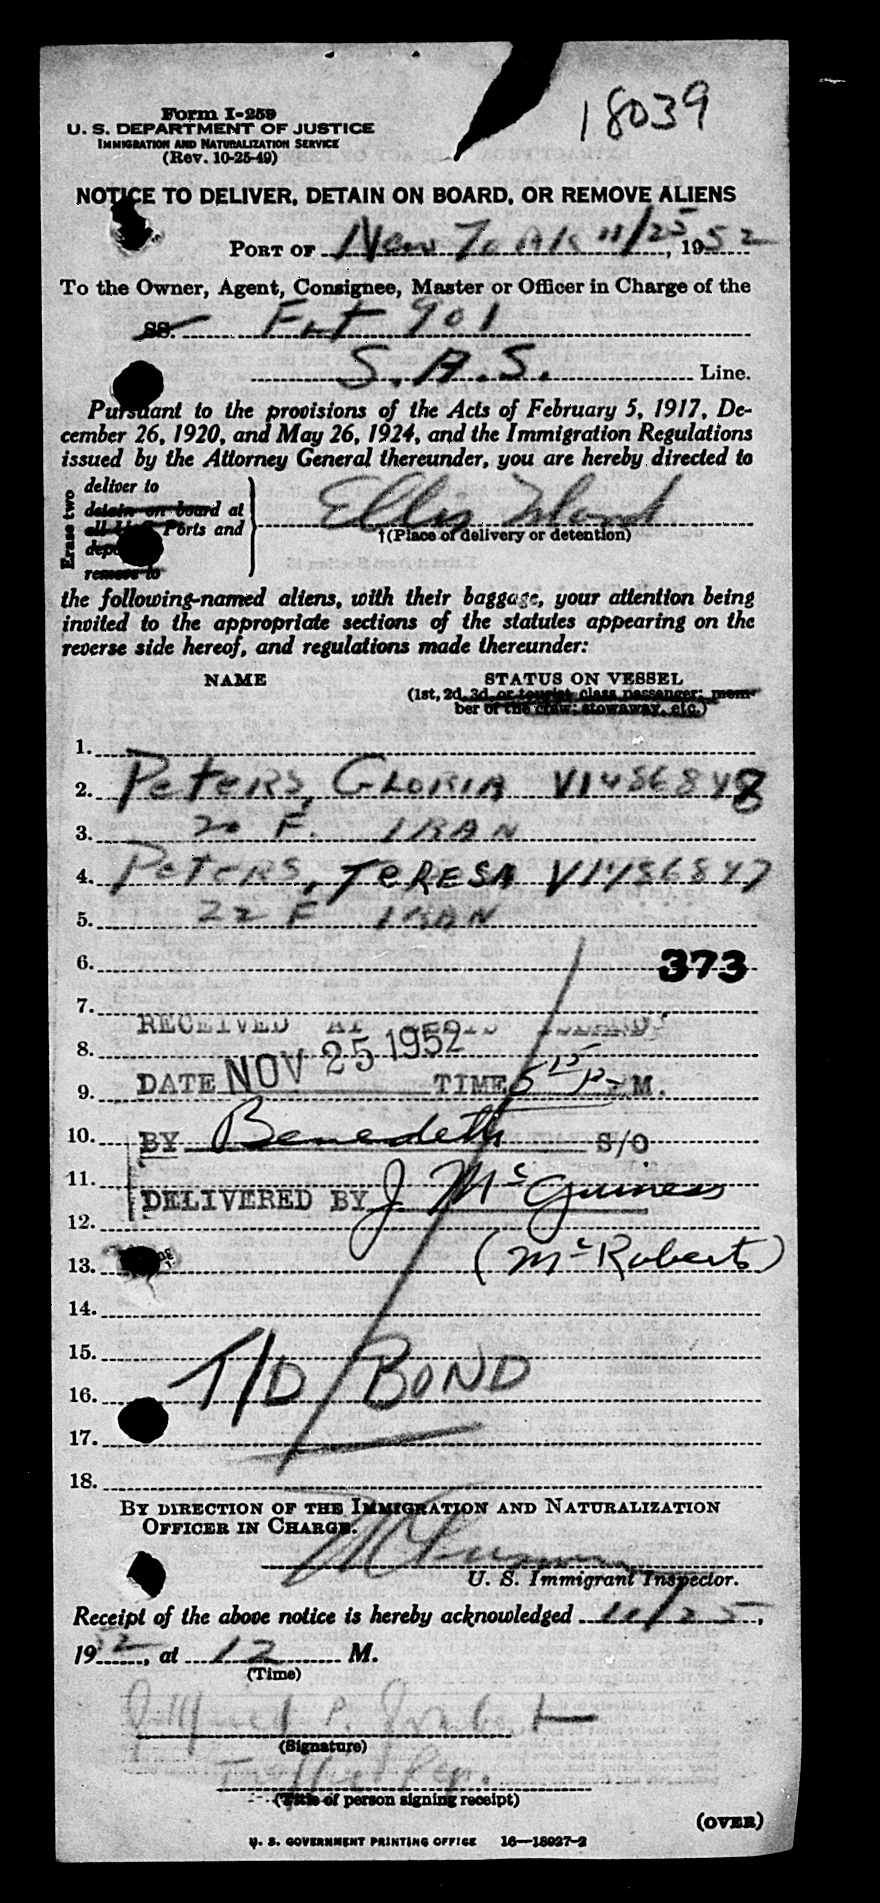 18039
Form I-259
U. S. DEPARTMENT OF JUSTICE
IMMIGRATION AND NATURALIZATION SERVICE
(Rev. 10-25-49)
NOTICE TO DELIVER, DETAIN ON BOARD, OR REMOVE ALIENS
PORT OF New York 11/25, 1952
To the Owner, Agent, Consignee, Master or Officer in Charge of the
SS. Flt 901
S.A.S. Line.
Pursuant to the provisions of the Acts of February 5, 1917, De-
cember 26, 1920, and May 26, 1924, and the Immigration Regulations
issued by the Attorney General thereunder, you are hereby directed to
Erase two
deliver to
detain on board at
Ports and
remove to
Ellis Island
†(Place of delivery or detention)
the following-named aliens, with their baggage, your attention being
invited to the appropriate sections of the statutes appearing on the
reverse side hereof, and regulations made thereunder:
NAME STATUS ON VESSEL
(1st, 2d, 3d, or tourist class passenger; mem-
ber of the crew; stowaway, etc.)
1.
2. Peters, Gloria V1486848
3. 20 F. IRAN
4. Peters, Teresa V1486847
5. 22 F IRAN
6. 373
7.
RECEIVED AT ELLIS ISLAND
8.
DATE NOV 25 1952 TIME 5 15 P M.
9.
10. BY Benedetti S/O
11.
DELIVERED BY J. McGuiness
12.
13. (McRoberts)
14.
15.
T/D BOND
16.
17.
18.
BY DIRECTION OF THE IMMIGRATION AND NATURALIZATION
OFFICER IN CHARGE.
U. S. Immigrant Inspector.
Receipt of the above notice is hereby acknowledged 11/25,
1952, at 12 M.
(Time)
P.
(Signature)
Rep.
(Title of person signing receipt)
(OVER)
U. S. GOVERNMENT PRINTING OFFICE 16—18027-2